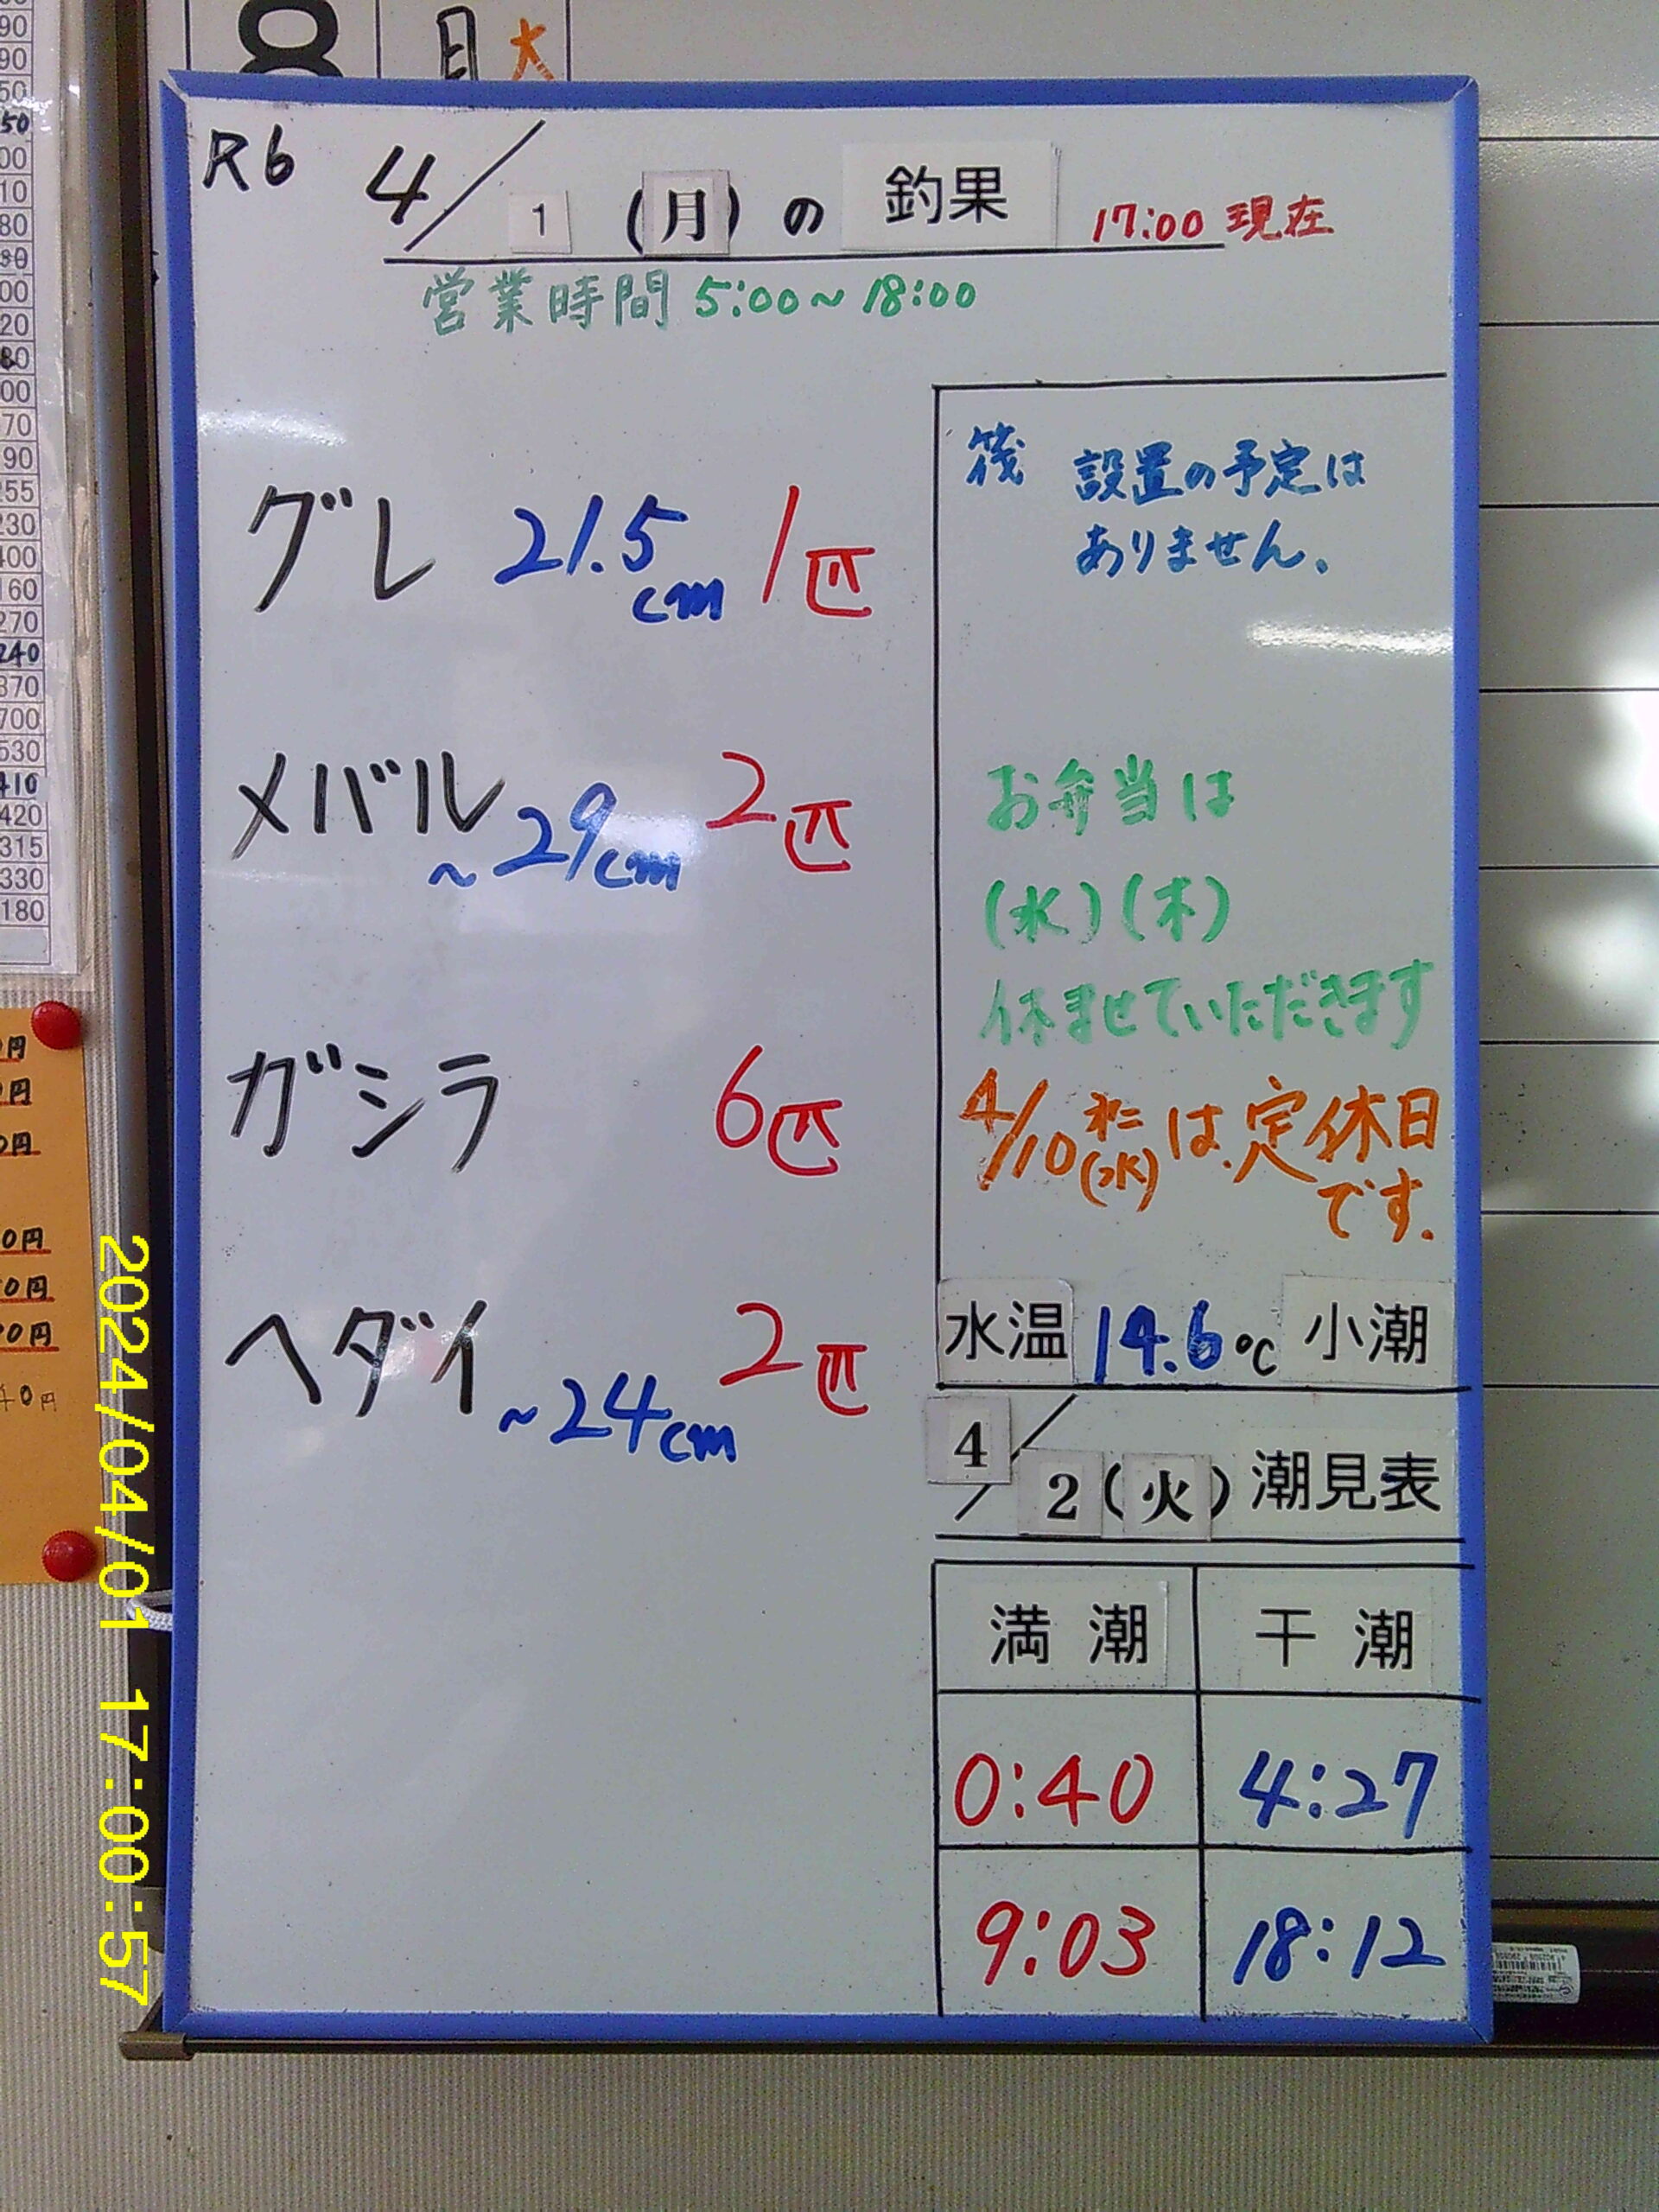 月 火
R6 4/1 (月)の 釣果 17:00 現在
営業時間 5:00~18:00
グレ 21.5cm 1匹
メバル ~29cm 2匹
ガシラ 6匹
ヘダイ ~24cm 2匹
筏 設置の予定は
ありません.
お弁当は
(水)(木)
休ませていただきます
4/10 (水)は、定休日
です.
水温 14.6℃ 小潮
4/2(火)潮見表
満潮 干潮
0:40 4:27
9:03 18:12
2024/04/01 17:00:57
255
230
400
160
270
240
370
700
530
410
420
315
330
180